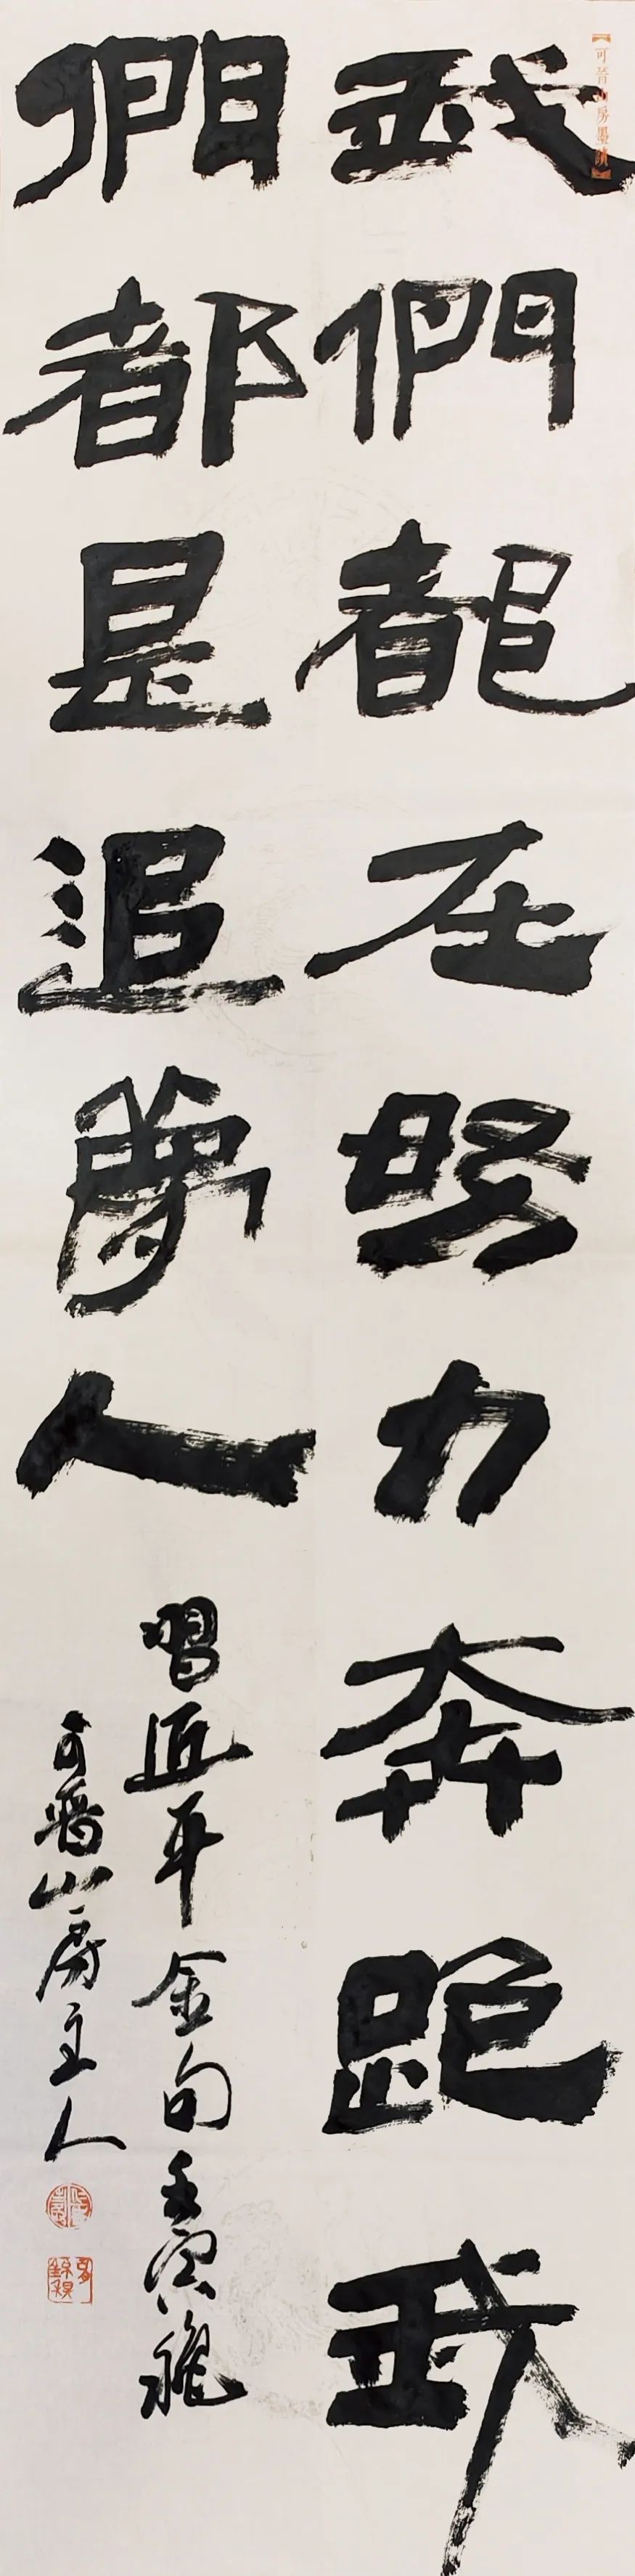 我們都在努力奔跑我
們都是追夢人
習近平金句壬寅穐
可晋山房主人
可晋山房墨蹟